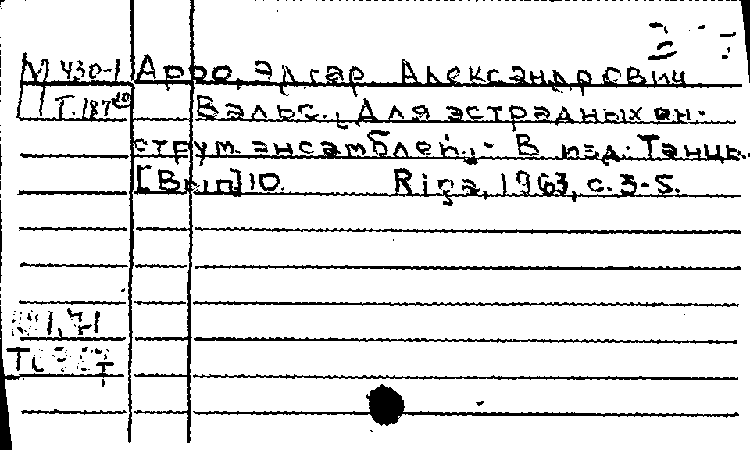 М 430-1 Арро, Эдгар Александрович
Т.187 Вальс. [Для эстрадных ин-
струм. ансамблей]. - В изд: Танцы.
[Вып] 10. Riga, 1963, с. 3-5.